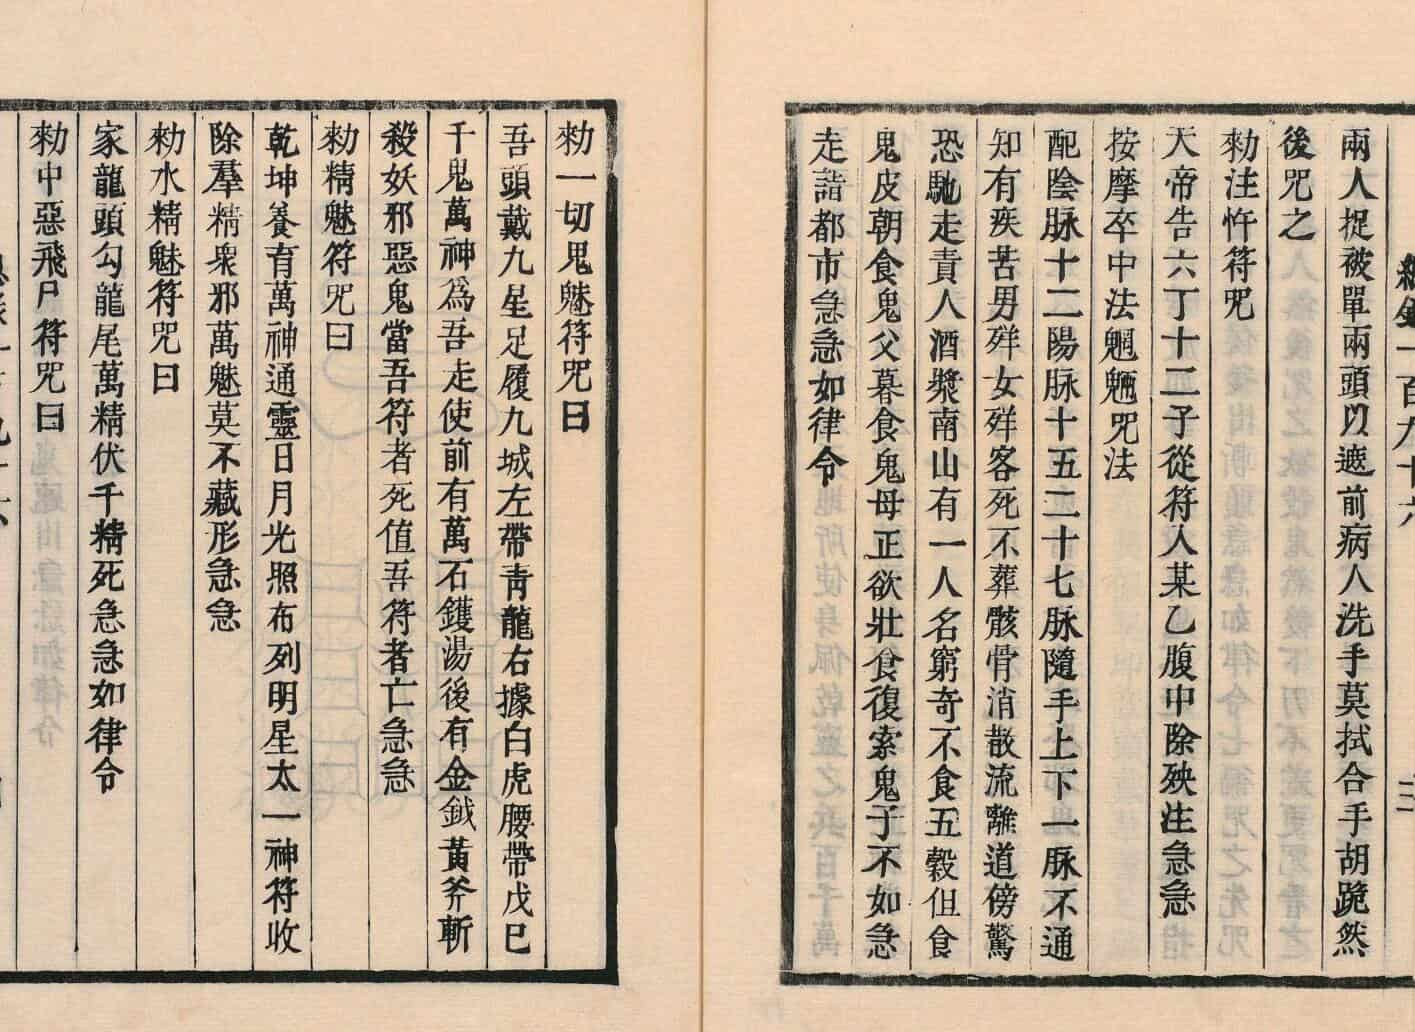 兩人捉被單兩頭以遮前病人洗手莫拭合手胡跪然
後咒之
勑注忤符咒
天帝告六丁十二子從符入某乙腹中除殃注急急
按摩卒中法魍魎咒法
配陰脉十二陽脉十五二十七脉隨手上下一脉不通
知有疾苦男祥女祥客死不葬骸骨消散流離道傍驚
恐馳走責人酒漿南山有一人名窮奇不食五穀但食
鬼皮朝食鬼父暮食鬼母正欲壯食復索鬼子不如急
走詣都市急急如律令
勑一切鬼魅符咒曰
吾頭戴九星足履九城左帶靑龍右據白虎腰帶戊己
千鬼萬神爲吾走使前有萬石鑊湯後有金鉞黃斧斬
殺妖邪惡鬼當吾符者死值吾符者亡急急
勑精魅符咒曰
乾坤養育萬神通靈日月光照布列明星太一神符收
除羣精衆邪萬魅莫不藏形急急
勑水精魅符咒曰
家龍頭勾龍尾萬精伏千精死急急如律令
勑中惡飛尸符咒曰